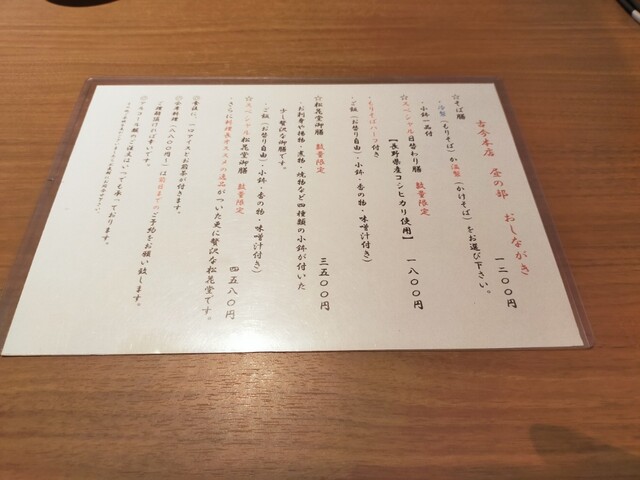 古今本店 昼の部 おしながき
☆そば膳 一二〇〇円
・冷製(もりそば)か温製(かけそば)をお選び下さい。
・小鉢一品付
☆スペシャル日替わり膳 数量限定 一八〇〇円
【長野県産コシヒカリ使用】
・もりそばハーフ付き
・ご飯(お替り自由)・小鉢・香の物・味噌汁付き)
☆松花堂御膳 数量限定 三五〇〇円
・お刺身や揚物・煮物・焼物など四種類の小鉢が付いた
少し贅沢な御膳です。
・ご飯(お替り自由)・小鉢・香の物・味噌汁付き)
☆スペシャル松花堂御膳 数量限定 四五八〇円
・さらに料理長オススメの逸品がついた更に贅沢な松花堂です。
◎食後に、一口アイスとお煎茶が付きます。
◎会席料理(八八〇〇円~)は前日までのご予約をお願い致します。
ご相談頂ければ幸いです。
◎アルコール類のご注文はいつでも承っております。